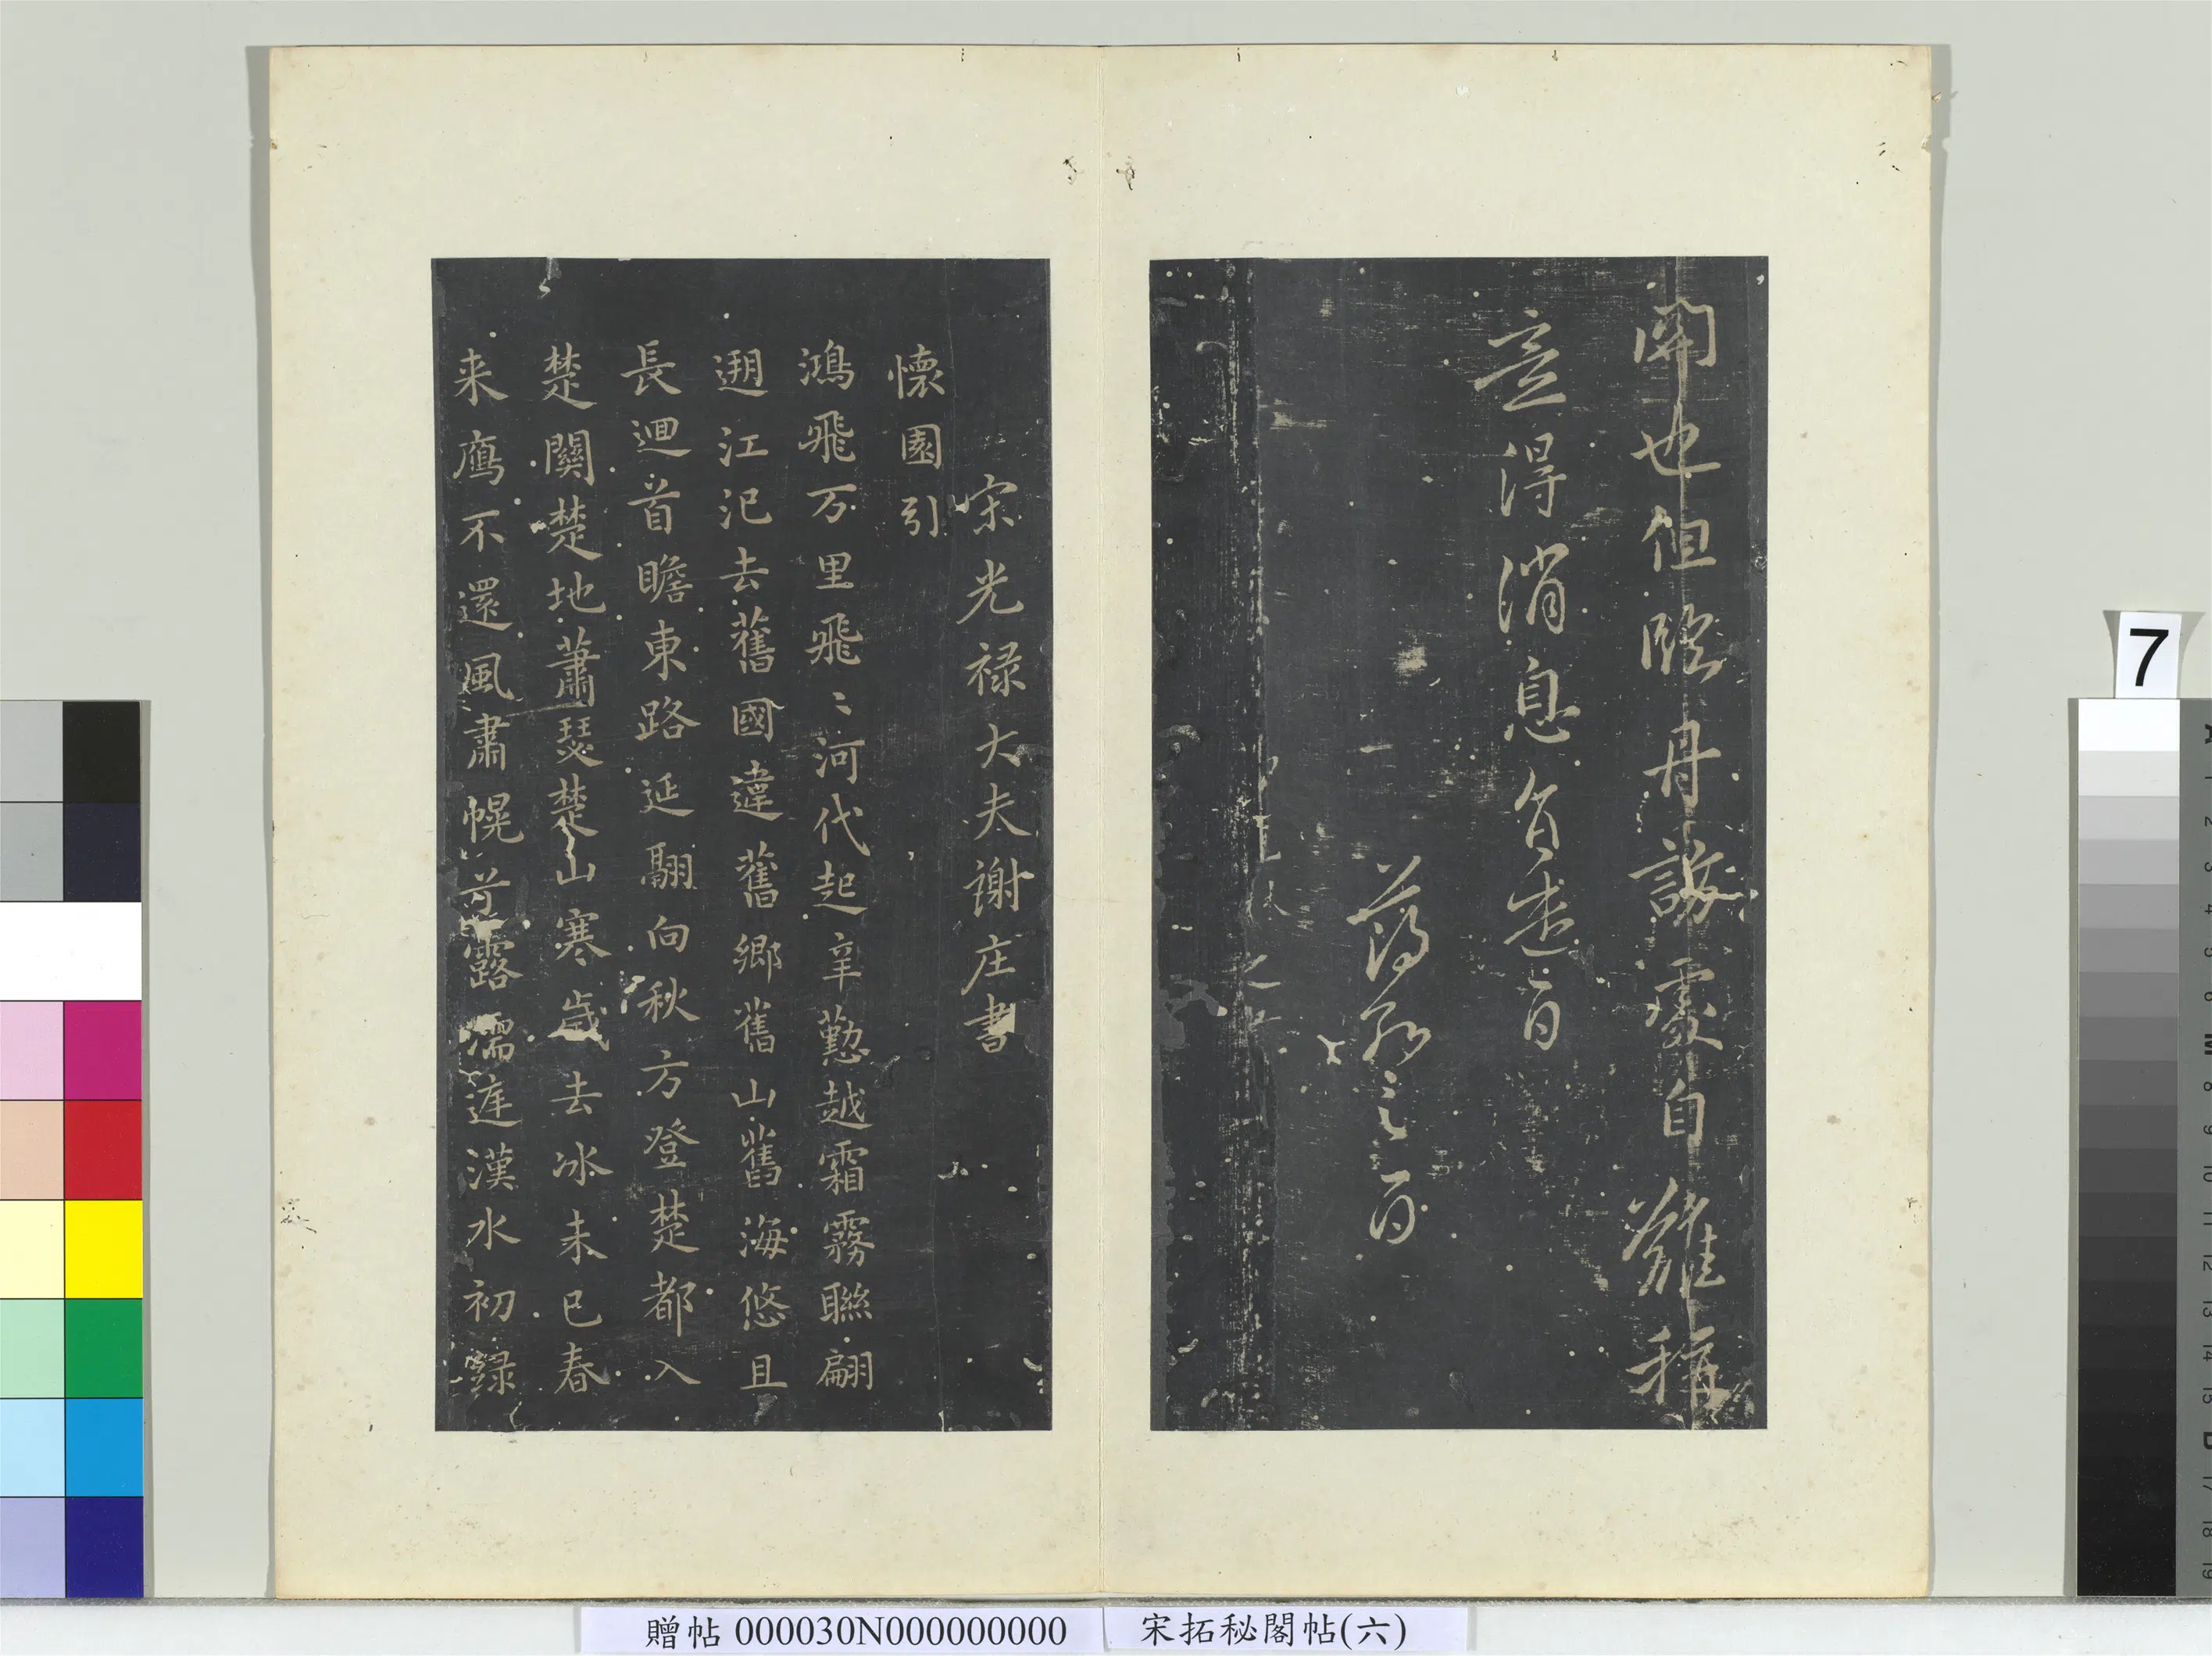 閑也但臨丹訪處自難稱
意得消息肖遣旨
一
薄紹之百
宋光禄大夫谢庄書
懷園引
鴻飛万里飛〻河代起辛懃越霜霧聯翩
遡江汜去舊國違舊鄉舊山舊海悠且
長迴首瞻東路延翮向秋方登楚都入
楚關楚地蕭瑟楚山寒歳去冰未已春
来鴈不還風肅幌兮露濡庭漢水初綠
贈帖 000030N000000000
宋拓秘閣帖(六)
7